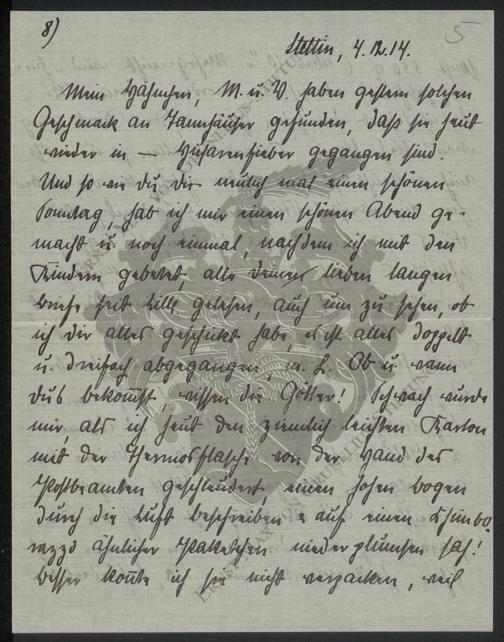 8)
5
Stettin, 4.12.14.
Mein Hähnchen, M. u. V. haben gestern solchen
Geschmack an Tannhäuser gefunden, daß sie heut
wieder in — Husarenfieber gegangen sind.
Und so wie du dir neulich mal einen schönen
Sonntag, hab ich mir einen schönen Abend ge-
macht u. noch einmal, nachdem ich mit den
Kindern gebetet, alle deine lieben langen
Briefe seit Lille gelesen, auch um zu sehen, ob
ich dir alles geschickt habe, es ist alles doppelt
u. dreifach abgegangen, m. L. Ob u. wann
dus bekommst, wissen die Götter! Schwach wurde
mir, als ich heut den ziemlich leichten Karton
mit der Thermosflasche von der Hand des
Postbeamten geschleudert einen hohen Bogen
durch die Luft beschreiben u. auf einen Chimbo-
razzo ähnlicher Paketchen niederplumsen sah!
Besser konnte ich sie nicht verpacken, weil